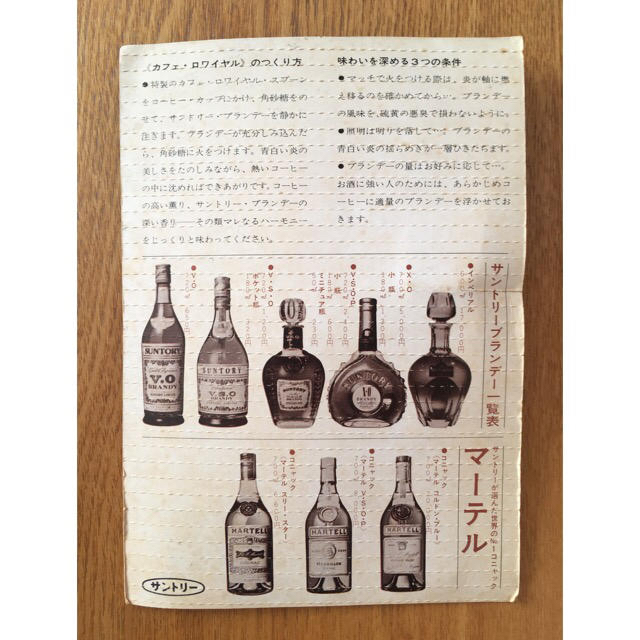 《カフェ・ロワイヤル》のつくり方
●特製のカフェ・ロワイヤル・スプーン
をコーヒー・カップにかけ、角砂糖をの
せて、サントリー・ブランデーを静かに
注ぎます。ブランデーが充分しみ込んだ
ら、角砂糖に火をつけます。青白い炎の
美しさをたのしみながら、熱いコーヒー
の中に沈めればできあがりです。コーヒー
の高い薫り、サントリー・ブランデーの
深い香り——その類マレなるハーモニー
をじっくりと味わってください。
味わいを深める3つの条件
●マッチで火をつける際は、炎が軸に燃
え移るのを確かめてから…。ブランデー
の風味を、硫黄の悪臭で損わないように。
●照明は明りを落して…。ブランデーの
青白い炎の揺らめきが一層ひきたちます。
●ブランデーの量はお好みに応じて…。
お酒に強い人のためには、あらかじめコ
ーヒーに適量のブランデーを浮かせてお
きます。
サントリーブランデー一覧表
●インペリアル
●X・O
小瓶
●V・S・O・P
小瓶
ミニチュア瓶
●V・S・O
ポケット瓶
●V・O
SUNTORY
V.O
BRANDY
SUNTORY
V.S.O
BRANDY
SUNTORY
SUNTORY
BRANDY
サントリーが選んだ世界の№1コニャック
マーテル
●コニャック
(マーテル コルドン・ブルー)
●コニャック
(マーテル V・S・O・P)
●コニャック
(マーテル スリー・スター)
MARTELL
MARTELL
MARTELL
サントリー